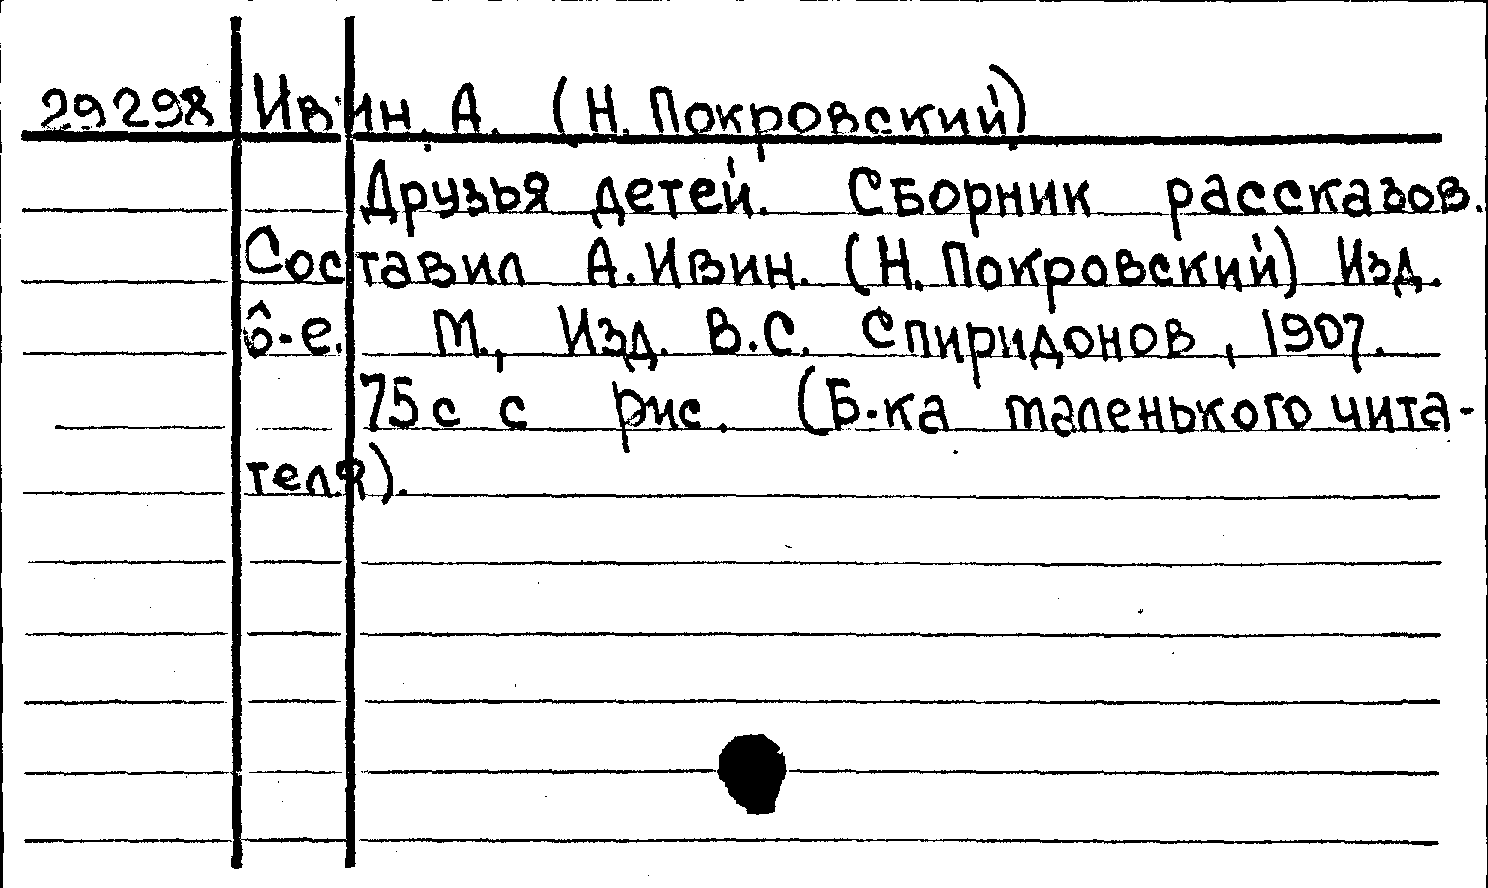 29298 Ивин, А. (Н. Покровский)
Друзья детей. Сборник рассказов.
Составил А. Ивин. (Н. Покровский) Изд.
6-е. М., Изд. В.С. Спиридонов, 1907.
75 с с рис. (Б-ка маленького чита-
теля).